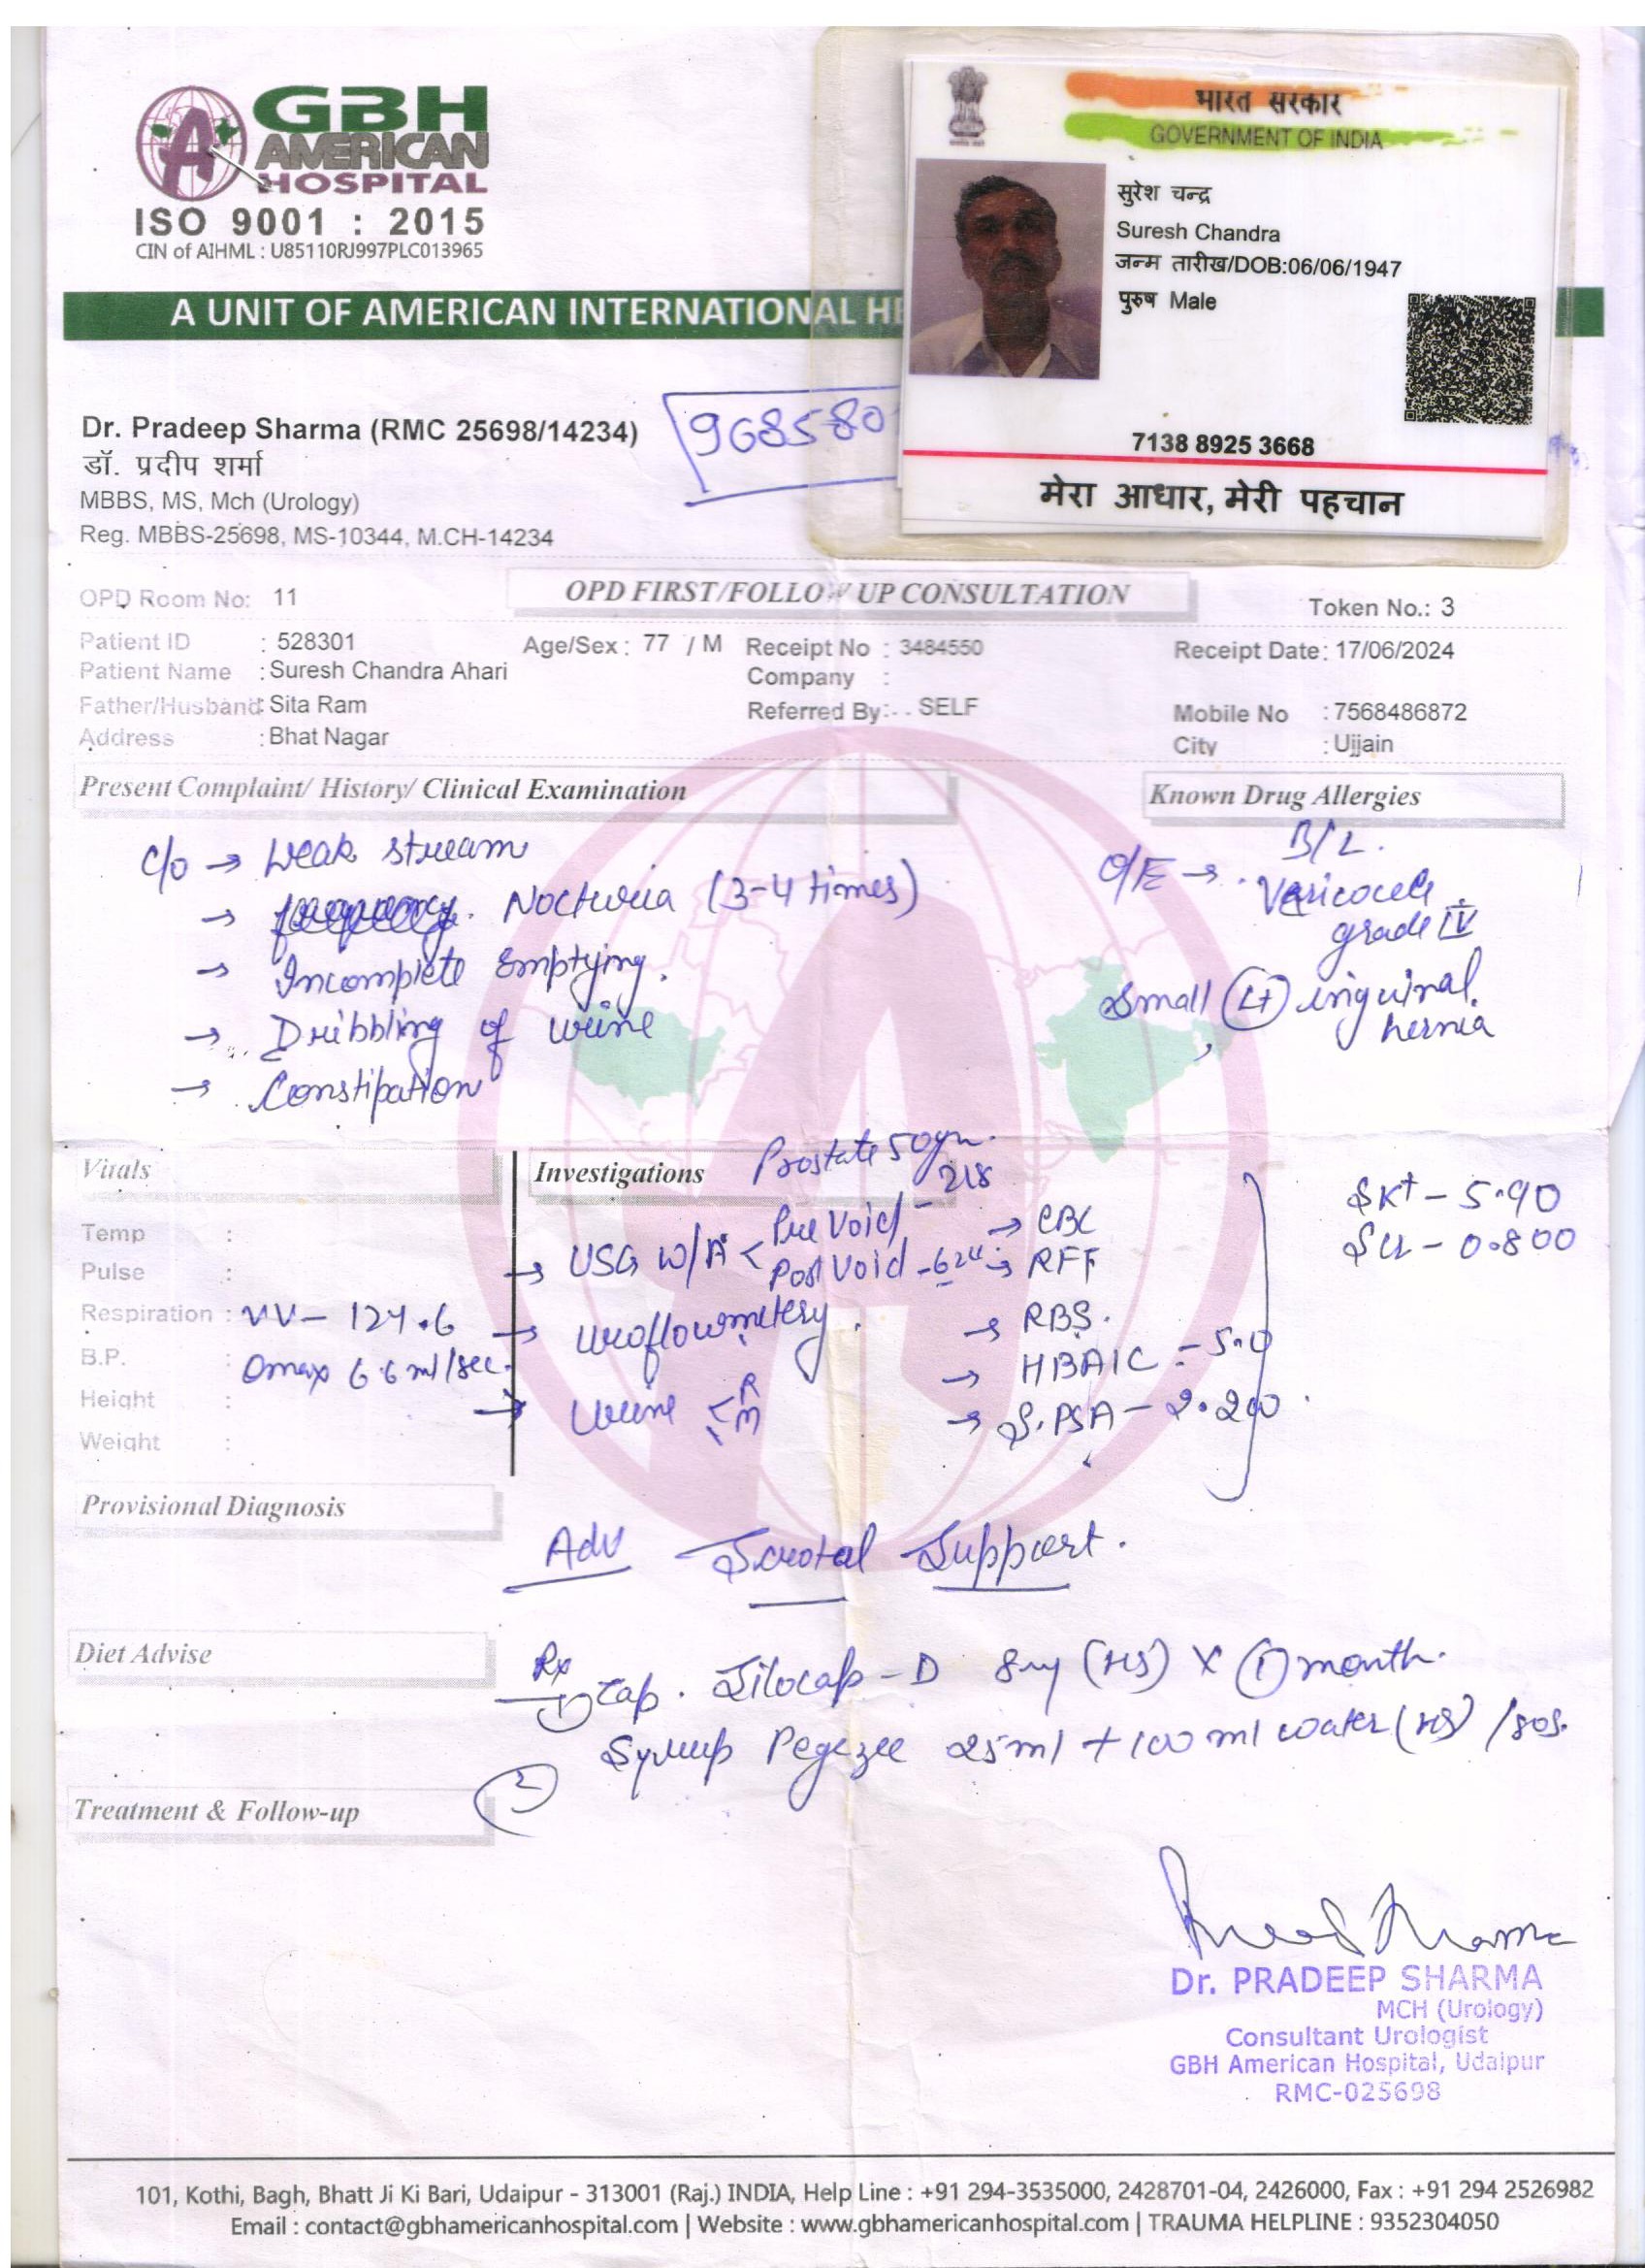 GBH
AMERICAN
HOSPITAL
ISO 9001 : 2015
CIN of AIHML : U85110RJ997PLC013965
भारत सरकार
GOVERNMENT OF INDIA
सुरेश चन्द्र
Suresh Chandra
जन्म तारीख/DOB:06/06/1947
पुरुष Male
7138 8925 3668
मेरा आधार, मेरी पहचान
A UNIT OF AMERICAN INTERNATIONAL HE
Dr. Pradeep Sharma (RMC 25698/14234)
968580
डॉ. प्रदीप शर्मा
MBBS, MS, Mch (Urology)
Reg. MBBS-25698, MS-10344, M.CH-14234
OPD Room No: 11
OPD FIRST/FOLLOW UP CONSULTATION
Token No.: 3
Patient ID : 528301 Age/Sex : 77 / M Receipt No : 3484550 Receipt Date: 17/06/2024
Patient Name : Suresh Chandra Ahari Company :
Father/Husband: Sita Ram Referred By:- . SELF Mobile No : 7568486872
Address : Bhat Nagar City : Ujjain
Present Complaint/ History/ Clinical Examination
Known Drug Allergies
c/o → Weak stream
→ Nocturia (3-4 times)
→ Incomplete Emptying.
→ Dribbling of urine
→ Constipation
O/E → B/L.
Varicocele
grade IV
Small (Lt) inguinal
hernia
Vitals
Temp :
Pulse :
Respiration : VV - 124.6
B.P. : Qmax 6.6 ml/sec.
Height :
Weight :
Investigations Prostate 50gm.
→ USG W/A < Pre Void - 218
Post Void - 62
→ Uroflowmetery.
→ Urine < R
M
→ CBC
→ RFT
→ RBS.
→ HBA1C - 5.0
→ S.PSA - 2.200
S K+ - 5.90
S Cr - 0.800
Provisional Diagnosis
Adv Scrotal Support.
Diet Advise
Rx
1) Cap. Silocap - D 8mg (HS) X (1) month.
2) Syrup Pegezee 25ml + 100 ml water (HS) /SOS.
Treatment & Follow-up
Dr. PRADEEP SHARMA
MCH (Urology)
Consultant Urologist
GBH American Hospital, Udaipur
RMC-025698
101, Kothi, Bagh, Bhatt Ji Ki Bari, Udaipur - 313001 (Raj.) INDIA, Help Line : +91 294-3535000, 2428701-04, 2426000, Fax : +91 294 2526982
Email : contact@gbhamericanhospital.com | Website : www.gbhamericanhospital.com | TRAUMA HELPLINE : 9352304050